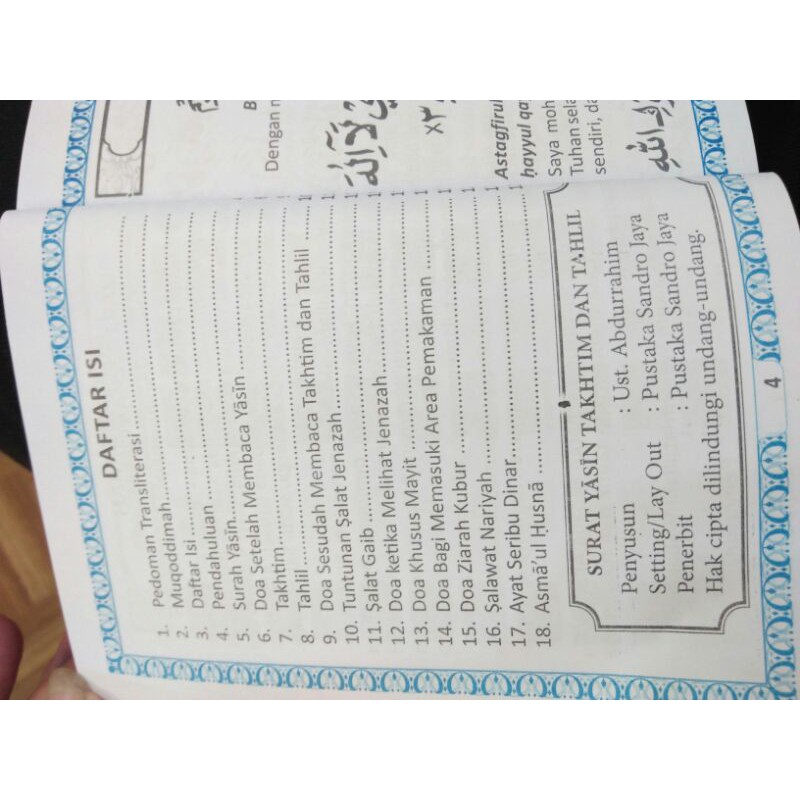 DAFTAR ISI
1. Pedoman Transliterasi
2. Muqoddimah
3. Daftar Isi
4. Pendahuluan
5. Surah Yāsīn
6. Doa Setelah Membaca Yāsīn
7. Takhtim
8. Tahlil
9. Doa Sesudah Membaca Takhtim dan Tahlil
10. Tuntunan Ṣalat Jenazah
11. Ṣalat Gaib
12. Doa ketika Melihat Jenazah
13. Doa Khusus Mayit
14. Doa Bagi Memasuki Area Pemakaman
15. Doa Ziarah Kubur
16. Ṣalawat Nariyah
17. Ayat Seribu Dinar
18. Asmā’ul Ḥusnā
SURAT YĀSĪN TAKHTIM DAN TAHLIL
Penyusun : Ust. Abdurrahim
Setting/Lay Out : Pustaka Sandro Jaya
Penerbit : Pustaka Sandro Jaya
Hak cipta dilindungi undang-undang.
4
Dengan
x٣
Astagfirul
ḥayyul
Saya moh
Tuhan sela
sendiri, da